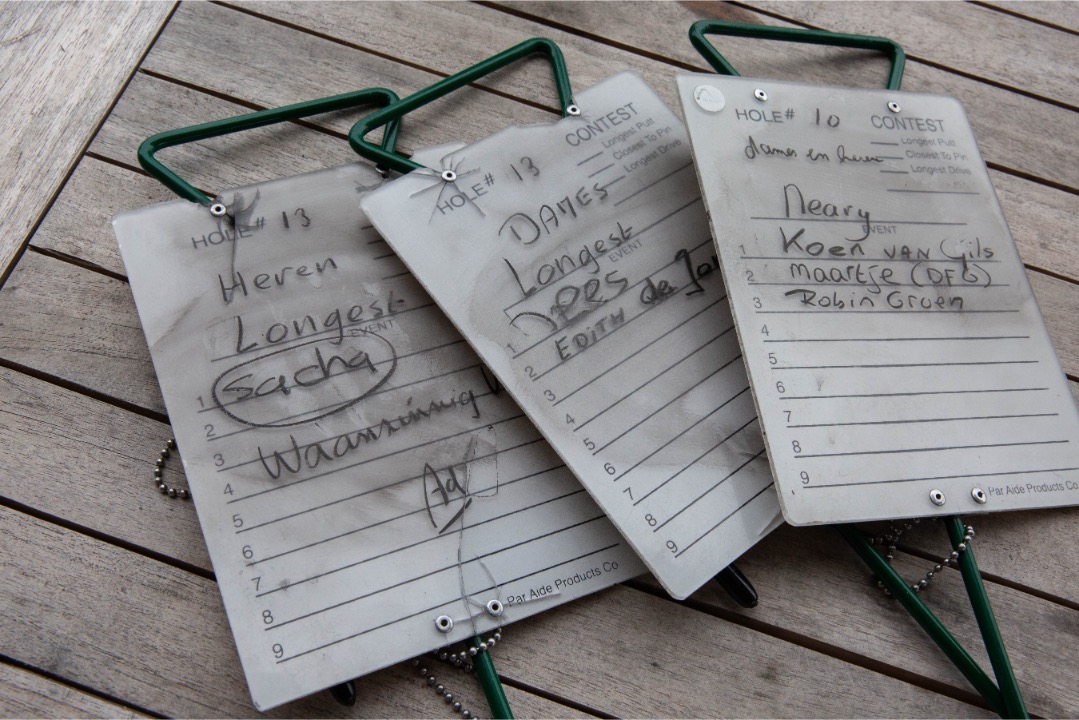 HOLE# 13
Heren
Longest
EVENT
Sacha
1
2
3 Waanzinnig
4
5
6
7
8
9
Par Aide Products Co
HOLE# 13 CONTEST
Longest Putt
Closest To Pin
Longest Drive
DAMES
Longest
EVENT
1
2 EDITH de
3
4
5
6
7
8
9
HOLE# 10 CONTEST
Longest Putt
dames en heren Closest To Pin
Longest Drive
Neary
EVENT
1 Koen van Gils
2 maartje (DFG)
3 Robin Groen
4
5
6
7
8
9
Par Aide Products Co